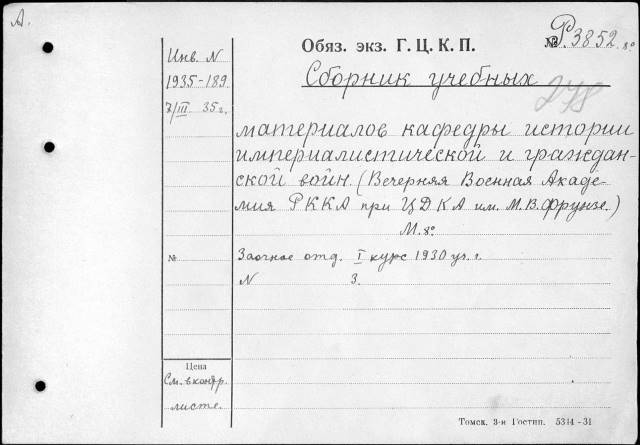 А.
Инв. N
1935-189
7/III 35г.
Обяз. экз. Г. Ц. К. П.
№ Р3852 8°
Сборник учебных
278
материалов кафедры истории
империалистической и граждан-
ской войн. (Вечерняя Военная Акаде-
мия РККА при ЦДКА им. М.В.Фрунзе.)
М. 8°
№
Заочное отд. I курс 1930 уч. г.
N 3.
Цена
См. в контр.
листе.
Томск. 3-я Гостип. 5314-31